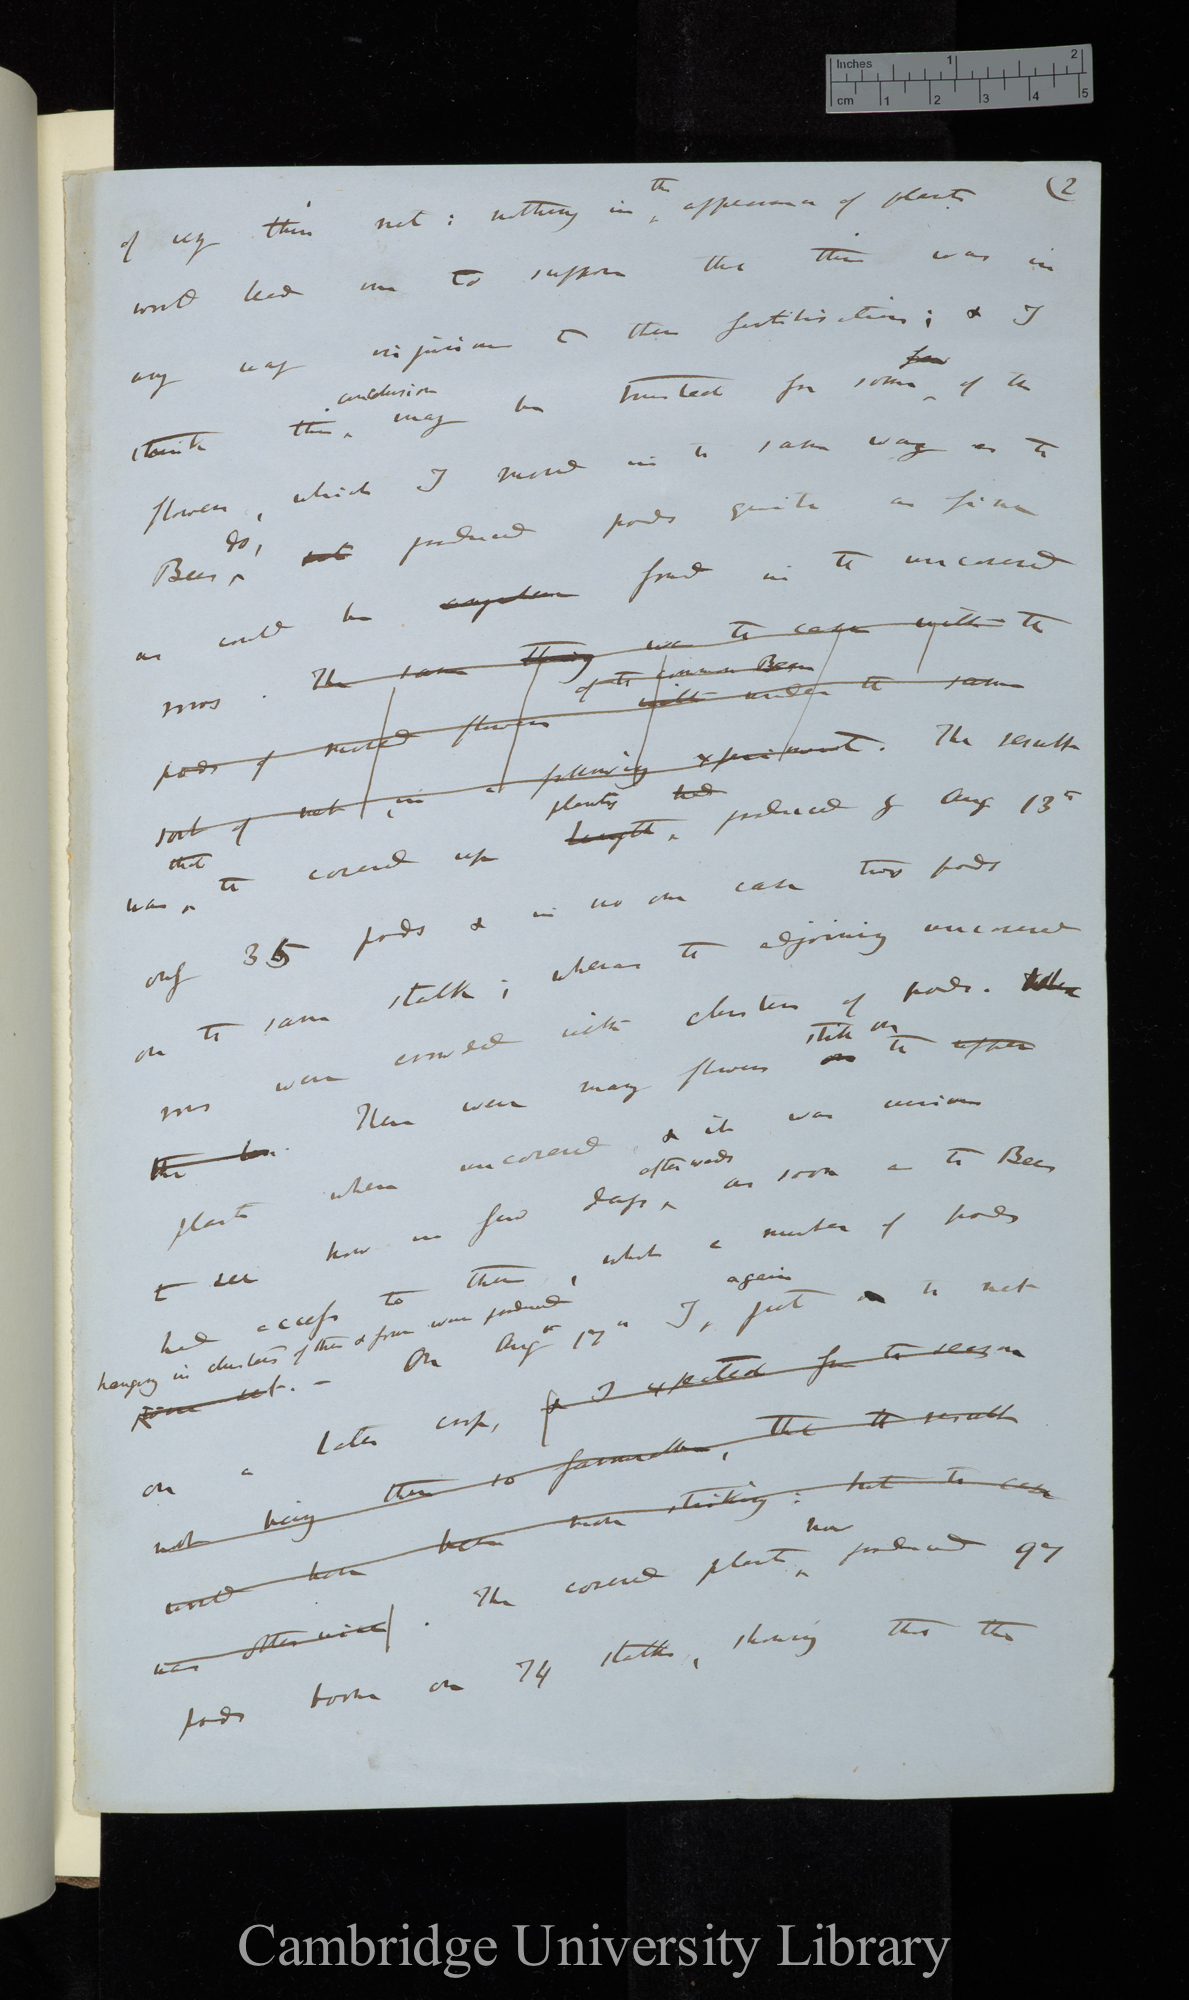 Inches 1 2
cm 1 2 3 4 5
(2
of very thin net: nothing in the appearance of plants
would lead one to suppose that this was in
any way injurious to their fertilisation; & I
think this conclusion may be trusted for some few of the
flowers, which I moved in the same way as the
Bees do, produced pods quite as fine
as could be found in the uncovered
rows. The same thing was the case with the
pods of moved flowers of the common Bean with under the same
sort of net, in a following experiment. The result
was that the covered up length plants had produced by Aug 13th
only 35 pods & in no one case two pods
on the same stalk; whereas the adjoining uncovered
rows were crowded with clusters of pods. When
the There were many flowers still on on the upper
plants when uncovered & it was curious
to see how in few days afterwards, as soon as the Bees
had access to them, what a number of pods
hanging in clusters of three & four were produced
were set. — On Aug 17th I again put the net
on a later crop, & I expected from the season
not being then so favourable, that the result
would have been more striking: but the case
was otherwise. The covered plants now produced 97
pods borne on 74 stalks, showing that the
Cambridge University Library